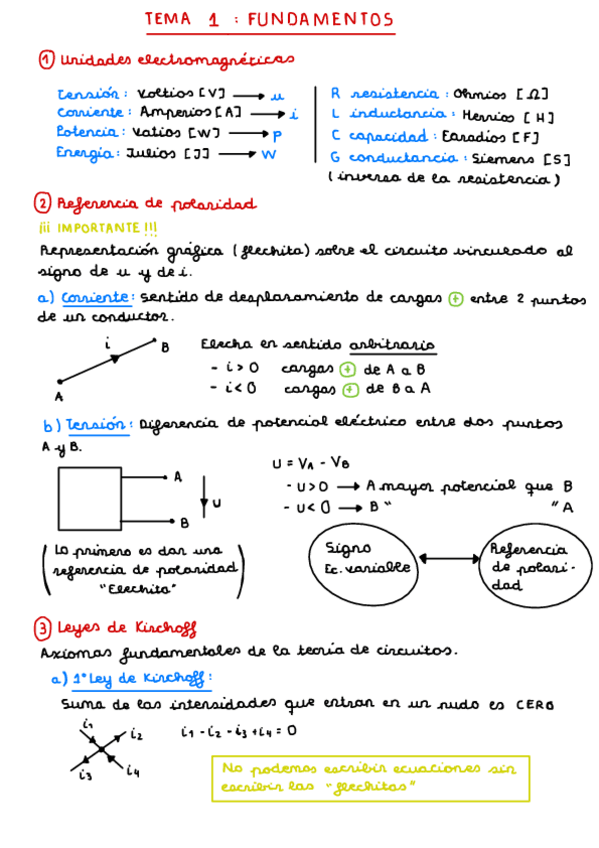 TEMA 1 : FUNDAMENTOS
1 Unidades electromagnéticas
Tensión : Voltios [V] → u
Corriente : Amperios [A] → i
Potencia : Vatios [W] → P
Energía : Julios [J] → W
R resistencia : Ohmios [Ω]
L inductancia : Henrios [H]
C capacidad : Faradios [F]
G conductancia : Siemens [S]
(inversa de la resistencia)
2 Referencia de polaridad
¡¡¡ IMPORTANTE !!!
Representación gráfica (flechita) sobre el circuito vinculado al
signo de u y de i.
a) Corriente : sentido de desplazamiento de cargas + entre 2 puntos
de un conductor.
i
B
A
Flecha en sentido arbitrario
- i > 0 cargas + de A a B
- i < 0 cargas + de B a A
b) Tensión : Diferencia de potencial eléctrico entre dos puntos
A y B.
A
u
B
U = VA - VB
- U > 0 → A mayor potencial que B
- U < 0 → B " " A
(Lo primero es dar una
referencia de polaridad
"Flechita")
Signo
Ec. variable
Referencia
de polari-
dad
3 Leyes de Kirchoff
Axiomas fundamentales de la teoría de circuitos.
a) 1ª Ley de Kirchoff :
Suma de las intensidades que entran en un nudo es CERO
i1
i2
i3
i4
i1 - i2 - i3 + i4 = 0
No podemos escribir ecuaciones sin
escribir las "flechitas"